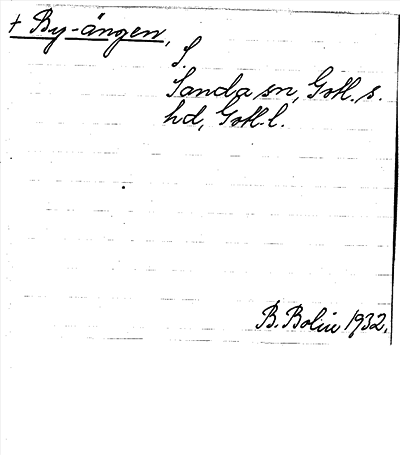 + By-ängen,
S.
Sanda sn, Gotl. s.
hd, Gotl. l.
B. Bolin 1932.